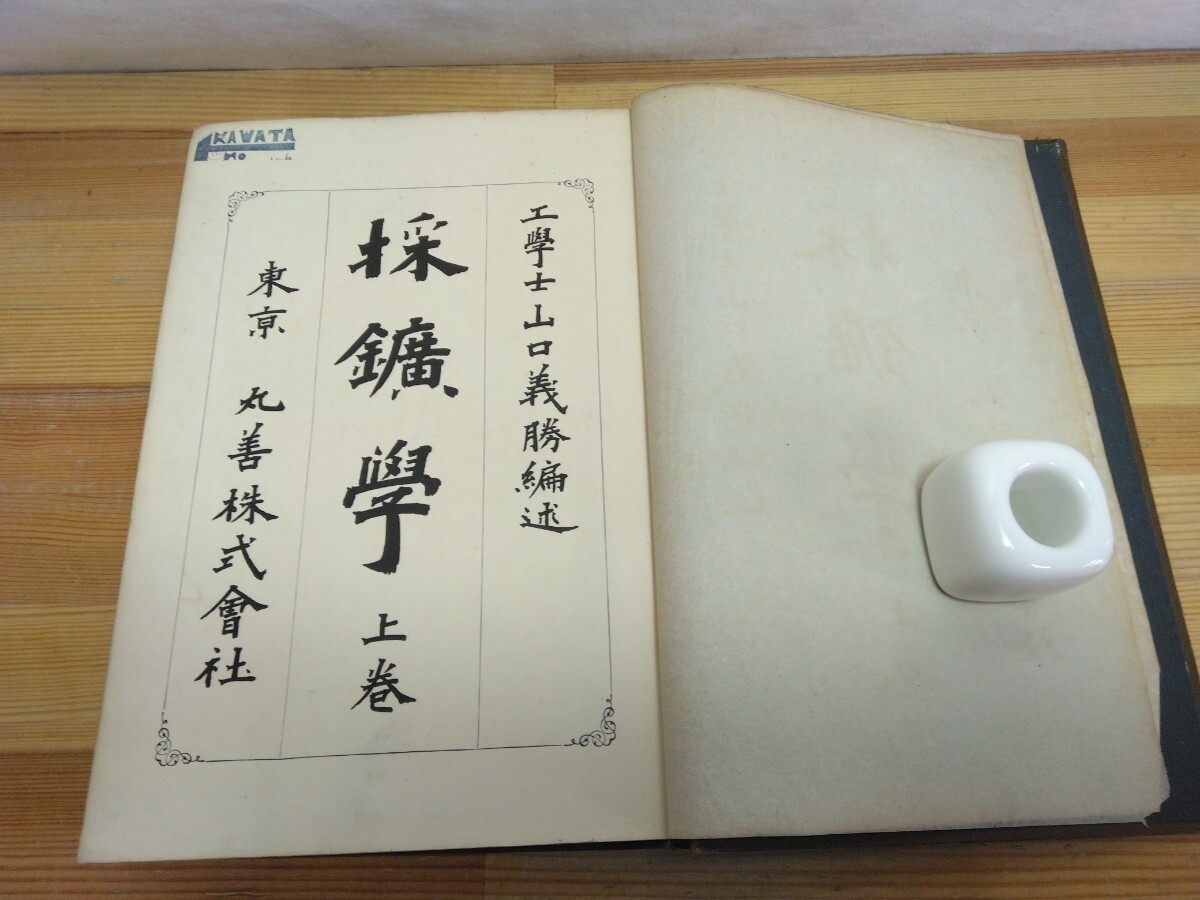 KAWATA
工學士山口義勝編述
採鑛學 上巻
東京 丸善株式會社